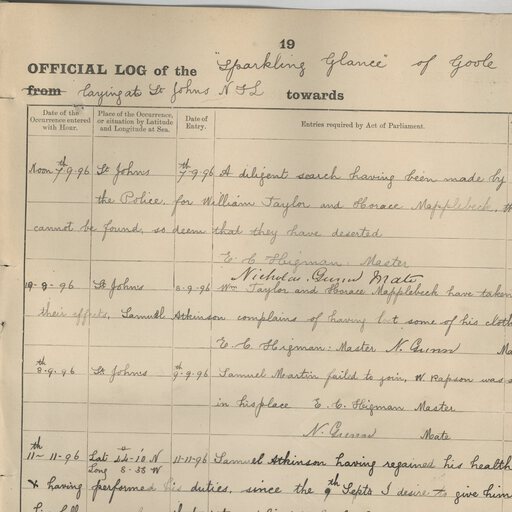 19
OFFICIAL LOG of the "Sparkling Glance" of Goole
from laying at St Johns N F L towards
Date of the Occurrence entered with Hour.
Place of the Occurrence, or situation by Latitude and Longitude at Sea.
Date of Entry.
Entries required by Act of Parliament.
Noon 7th 9.96 St Johns 7th 9.96 A diligent search having been made by
the Police, for William Taylor and Horace Mapplebeck,
cannot be found, so deem that they have deserted
E. C. Higman. Master
Nicholas Gunn Mate
9.96 St Johns 8.9.96 Wm Taylor and Horace Mapplebeck have taken
their effects, Samuel Atkinson complains of having lost some of his cloth
E. C. Higman: Master N. Gunn Ma
8th.9.96 St Johns 9.9.96 Samuel Martin failed to join, W. Rapson was s
in his place E. C. Higman Master
N. Gunn Mate
11th 11-96 Lat 44-10 N 11-11-96 Samuel Atkinson having regained his health
Long 8-38 W
x having performed his duties, since the 9th Septr I desire to give him